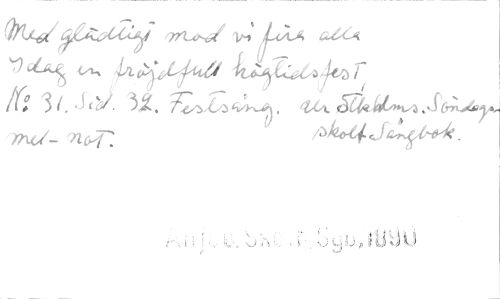 Med gladtigt mod vi fira alla
Idag en fröjdfull högtidsfest,
No 31. Sid. 32. Festsång. ur Stkhlms. Söndags-
mel- not. skol. Sångbok.
Sgb, 1890